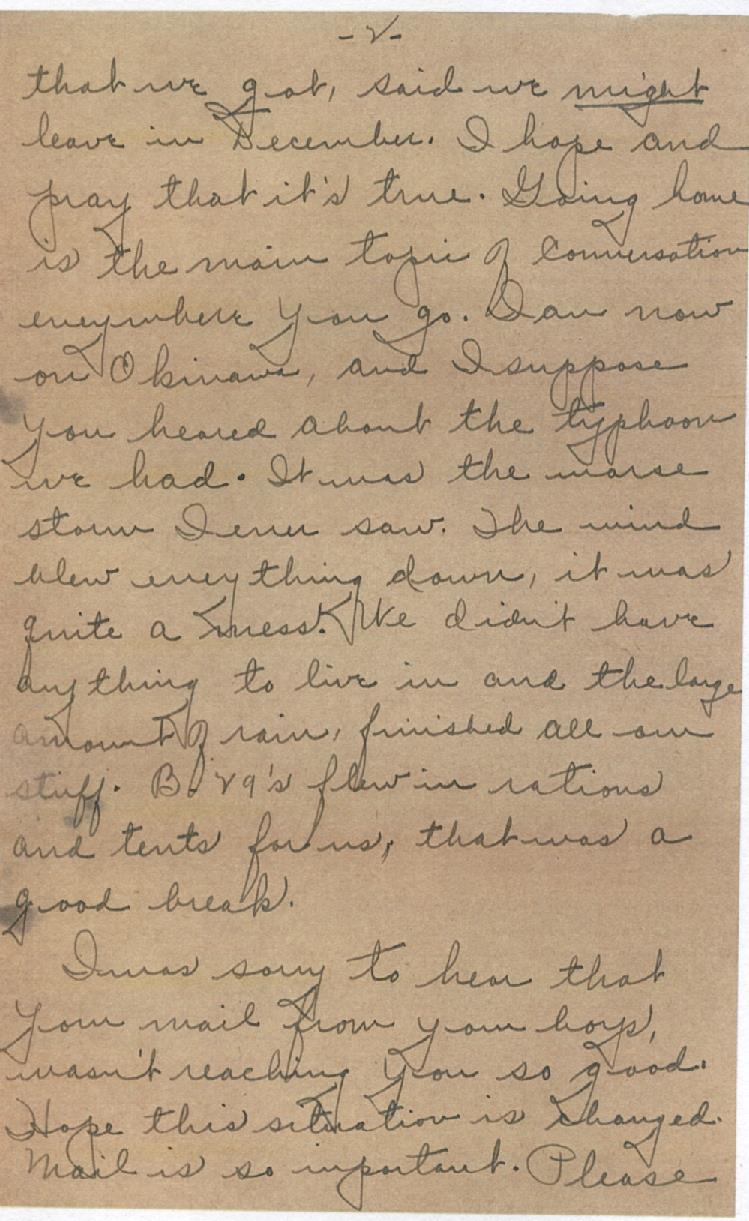 -2-
that we got, said we might
leave in December. I hope and
pray that it's true. Going home
is the main topic of conversation
everywhere you go. I am now
on Okinawa, and I suppose
you heared about the typhoon
we had. It was the worse
storm I ever saw. The wind
blew everything down, it was
quite a mess. We didn't have
anything to live in and the large
amount of rain, finished all our
stuff. B.29's flew in rations
and tents for us, that was a
good break.
I was sorry to hear that
your mail from your boys,
wasn't reaching you so good.
Hope this situation is changed.
Mail is so important. Please